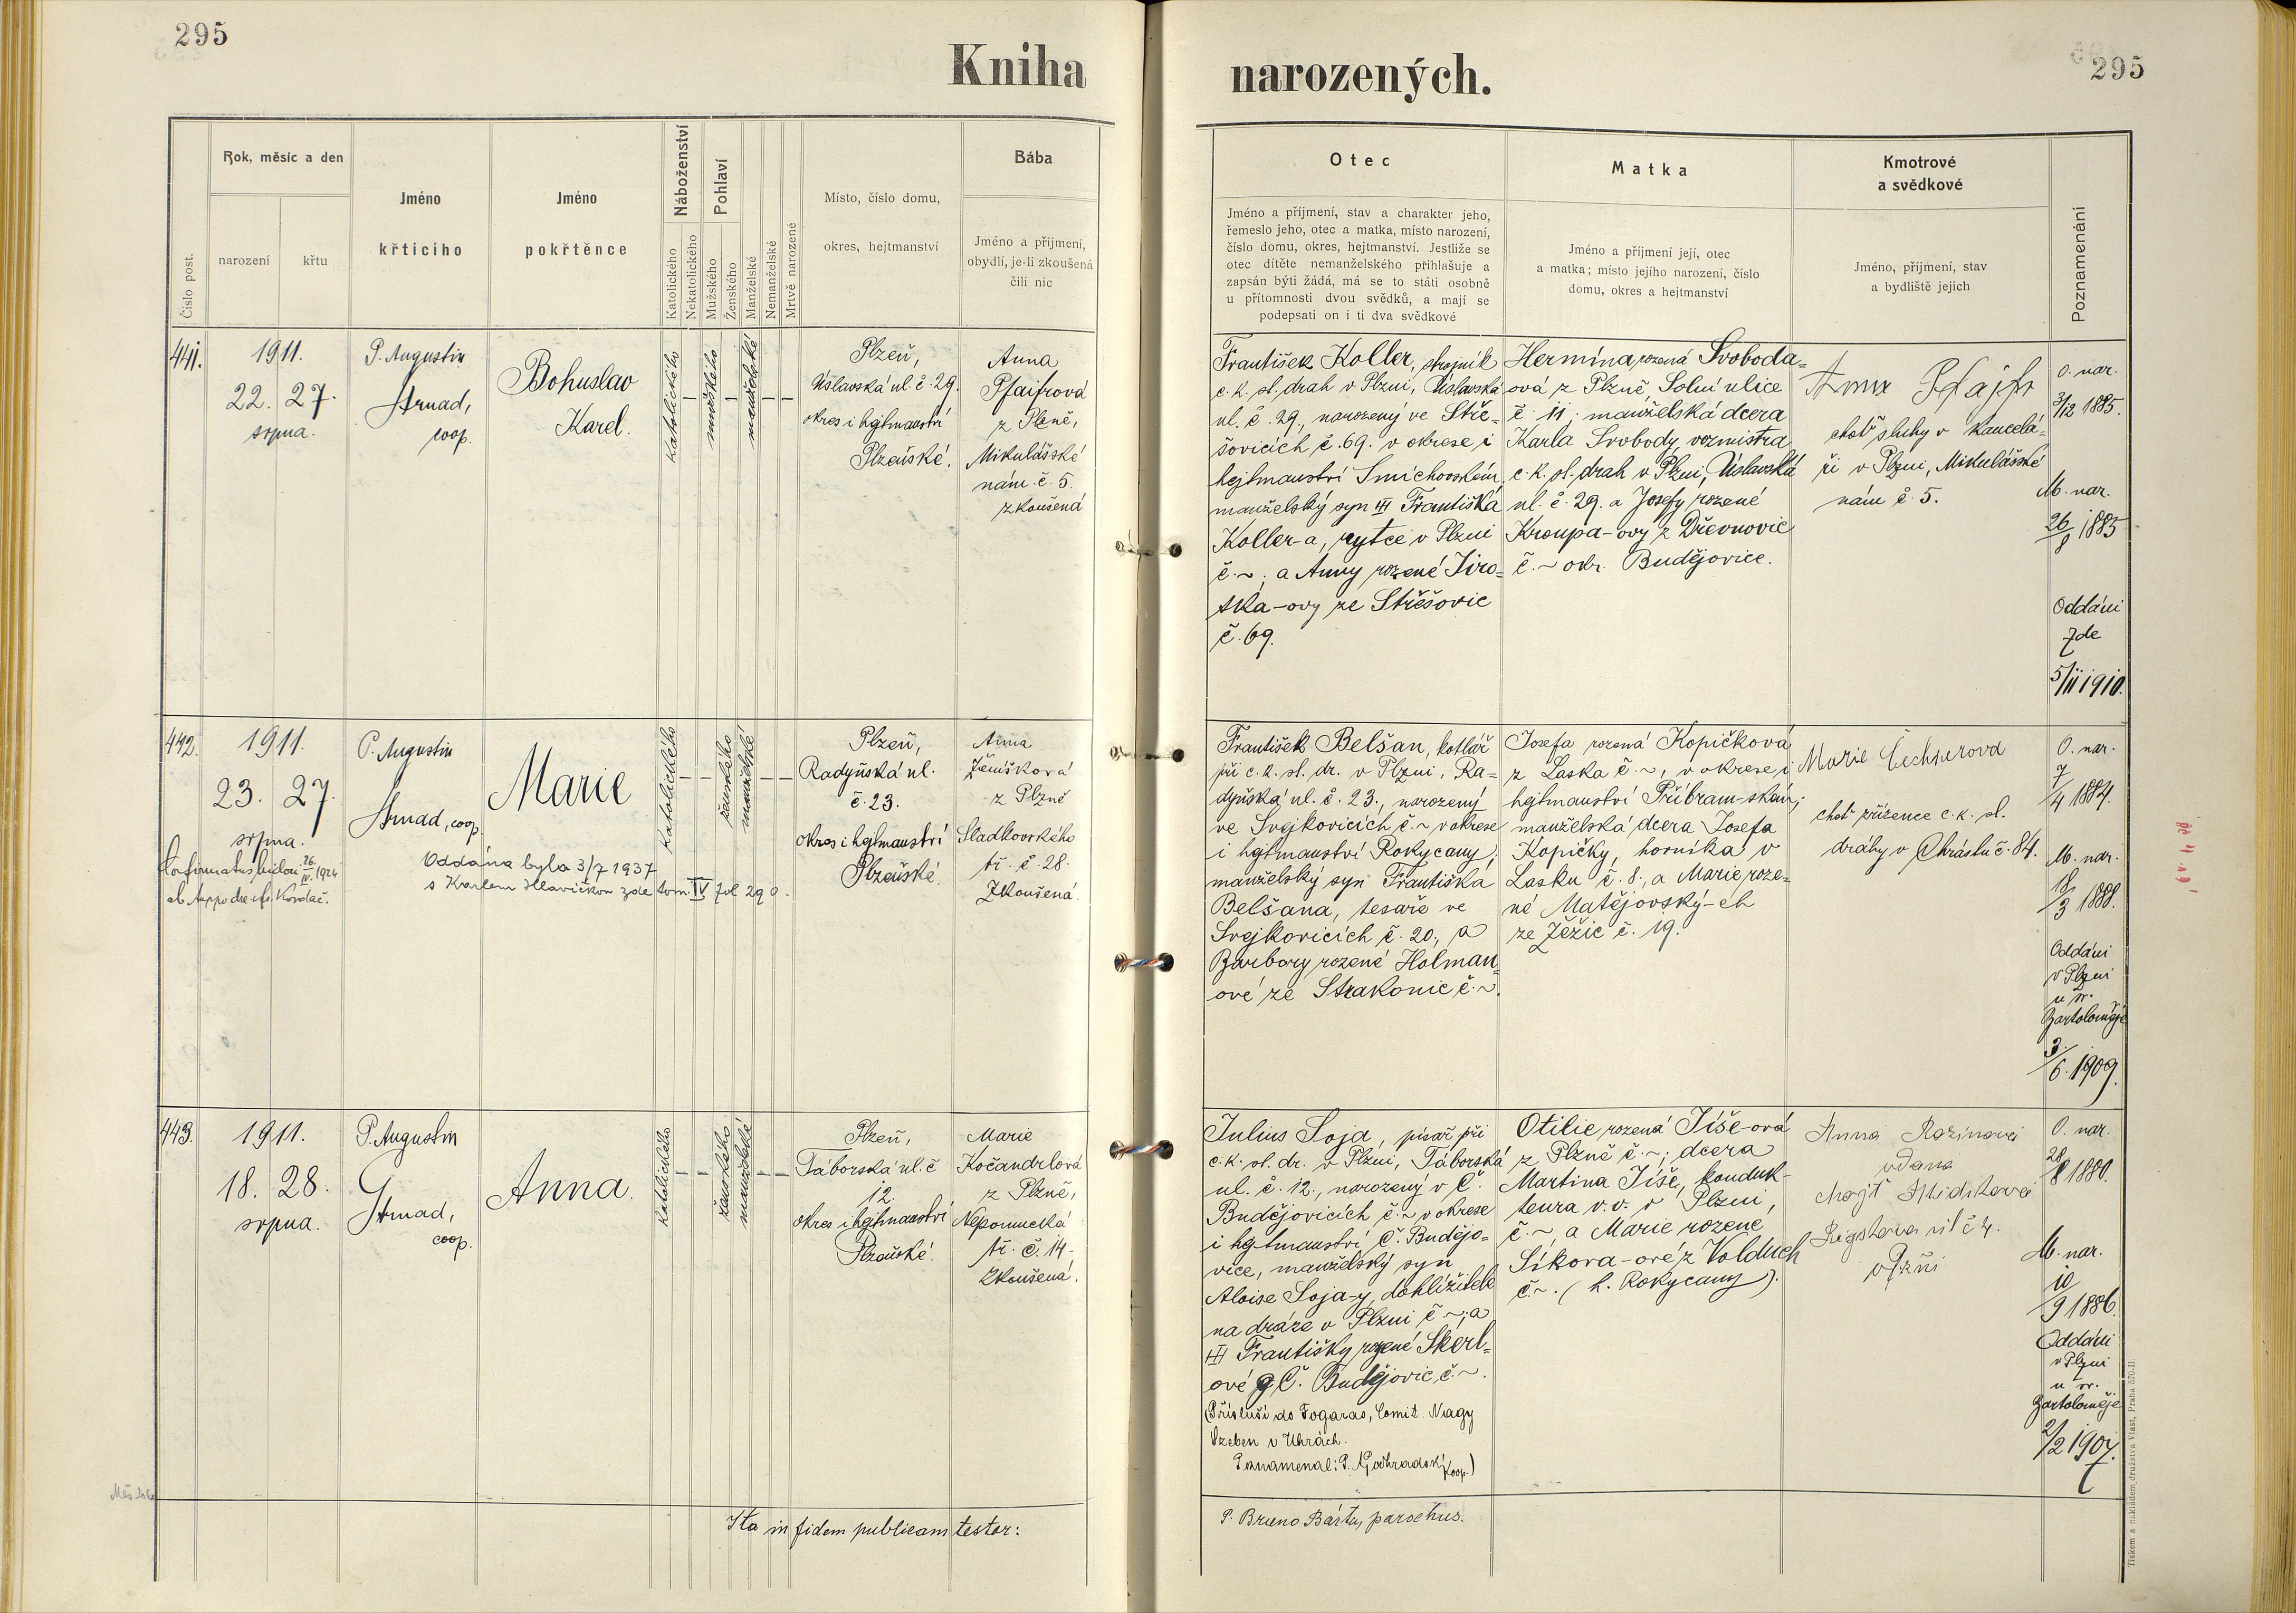 295
Kniha
narozených.
295
Číslo post.
Rok, měsíc a den
narození
křtu
Jméno
křticího
Jméno
pokřtěnce
Náboženství
Katolického
Nekatolického
Pohlaví
Mužského
Ženského
Manželské
Nemanželské
Mrtvě narozené
Místo, číslo domu,
okres, hejtmanství
Bába
Jméno a příjmení,
obydlí, je-li zkoušená
čili nic
Otec
Jméno a příjmení, stav a charakter jeho,
řemeslo jeho, otec a matka, místo narození,
číslo domu, okres, hejtmanství. Jestliže se
otec dítěte nemanželského přihlašuje a
zapsán býti žádá, má se to státi osobně
u přítomnosti dvou svědků, a mají se
podepsati on i ti dva svědkové
Matka
Jméno a příjmení její, otec
a matka; místo jejího narození, číslo
domu, okres a hejtmanství
Kmotrové
a svědkové
Jméno, příjmení, stav
a bydliště jejich
Poznamenání
441.
1911.
22. 27.
srpna.
P. Augustin
Strnad,
coop.
Bohuslav
Karel.
katolického
mužského
manželské
Plzeň,
Úslavská ul. č. 29.
okres i hejtmanství
Plzeňské.
Anna
Pfaifrová
z Plzně,
Mikulášské
nám. č. 5.
zkoušená
František Koller, strojník
c. k. st. drah v Plzni, Úslavská
ul. č. 29., narozený ve Stře-
šovicích č. 69. v okrese i
hejtmanství Smíchovském,
manželský syn ††† Františka
Koller-a, rytce v Plzni
č. ~; a Anny rozené Jiro-
tka-ovy ze Střešovic
č. 69.
Hermína rozená Svoboda-
ová z Plzně, Solní ulice
č. 11; manželská dcera
Karla Svobody, vozmistra
c. k. st. drah v Plzni, Úslavská
ul. č. 29. a Josefy rozené
Kroupa-ovy z Dřevnovic
č. ~ okr. Budějovice.
Anna Pfajfr
choť sluhy v kancelá-
ři v Plzni, Mikulášské
nám č. 5.
O. nar.
3/12 1885.
M. nar.
26/8 1885
Oddáni
zde
5/11 1910.
442.
1911.
23. 27.
srpna.
P. Augustin
Strnad, coop.
Marie
katolického
ženského
manželské
Plzeň,
Radyňská ul.
č. 23.
okres i hejtmanství
Plzeňské.
Anna
Žemšková
z Plzně
Sladkovského
tř. č. 28.
Zkoušená.
26/IV. 1924
Oddána byla 3/7 1937
s Karlem Hlavičkou zde tom. IV fol 290.
František Belšan, kotlář
při c. k. st. dr. v Plzni, Ra-
dyňská ul. č. 23., narozený
ve Svejkovicích č. ~ v okrese
i hejtmanství Rokycany;
manželský syn Františka
Belšana, tesaře ve
Svejkovicích č. 20., a
Barbory rozené Holman-
ové ze Strakonic č. ~.
Josefa rozená Kopičková
z Laska č. ~, v okrese i
hejtmanství Příbram-ském;
manželská dcera Josefa
Kopičky, horníka v
Lasku č. 8., a Marie roze-
né Matějovský-ch
ze Žěžic č. 19.
Marie Čechnerová
choť zřízence c. k. st.
dráhy v Chrástu č. 84.
O. nar.
7/4 1884.
M. nar.
18/3 1888.
Oddáni
v Plzni
u sv.
Bartoloměje
3/6. 1909.
443.
1911.
18. 28.
srpna.
P. Augustin
Strnad,
coop.
Anna.
katolického
ženského
manželské
Plzeň,
Táborská ul. č
12.
okres i hejtmanství
Plzeňské.
Marie
Kočandrlová
z Plzně,
Nepomucká
tř. č. 14.
Zkoušená.
Julius Soja, písař při
c. k. st. dr. v Plzni, Táborská
ul. č. 12., narozený v Č.
Budějovicích č. ~ v okrese
i hejtmanství Č. Budějo-
vice, manželský syn
Aloise Soja-y, dohlížitele
na dráze v Plzni č ~; a
††† Františky rozené Skérl-
ové z Č. Budějovic č. ~.
(Přísluší do Fogaras, Comit. Nagy
Szeben v Uhrách.
Otilie rozená Jíše-ová
z Plzně č. ~; dcera
Martina Jíše, konduk-
teura v. v. v Plzni,
č. ~, a Marie rozené
Síkora-ové z Volduch
č. ~. (h. Rokycany).
Anna
vdana
O. nar.
28/8 1880.
M. nar.
10/9 1886.
Oddáni
v Plzni
u sv.
Bartoloměje
2/2 1907.
Ita in fidem publicam testor:
P. Bruno Bárta, parochus.
Tiskem a nákladem družstva Vlast, Praha 570-II.